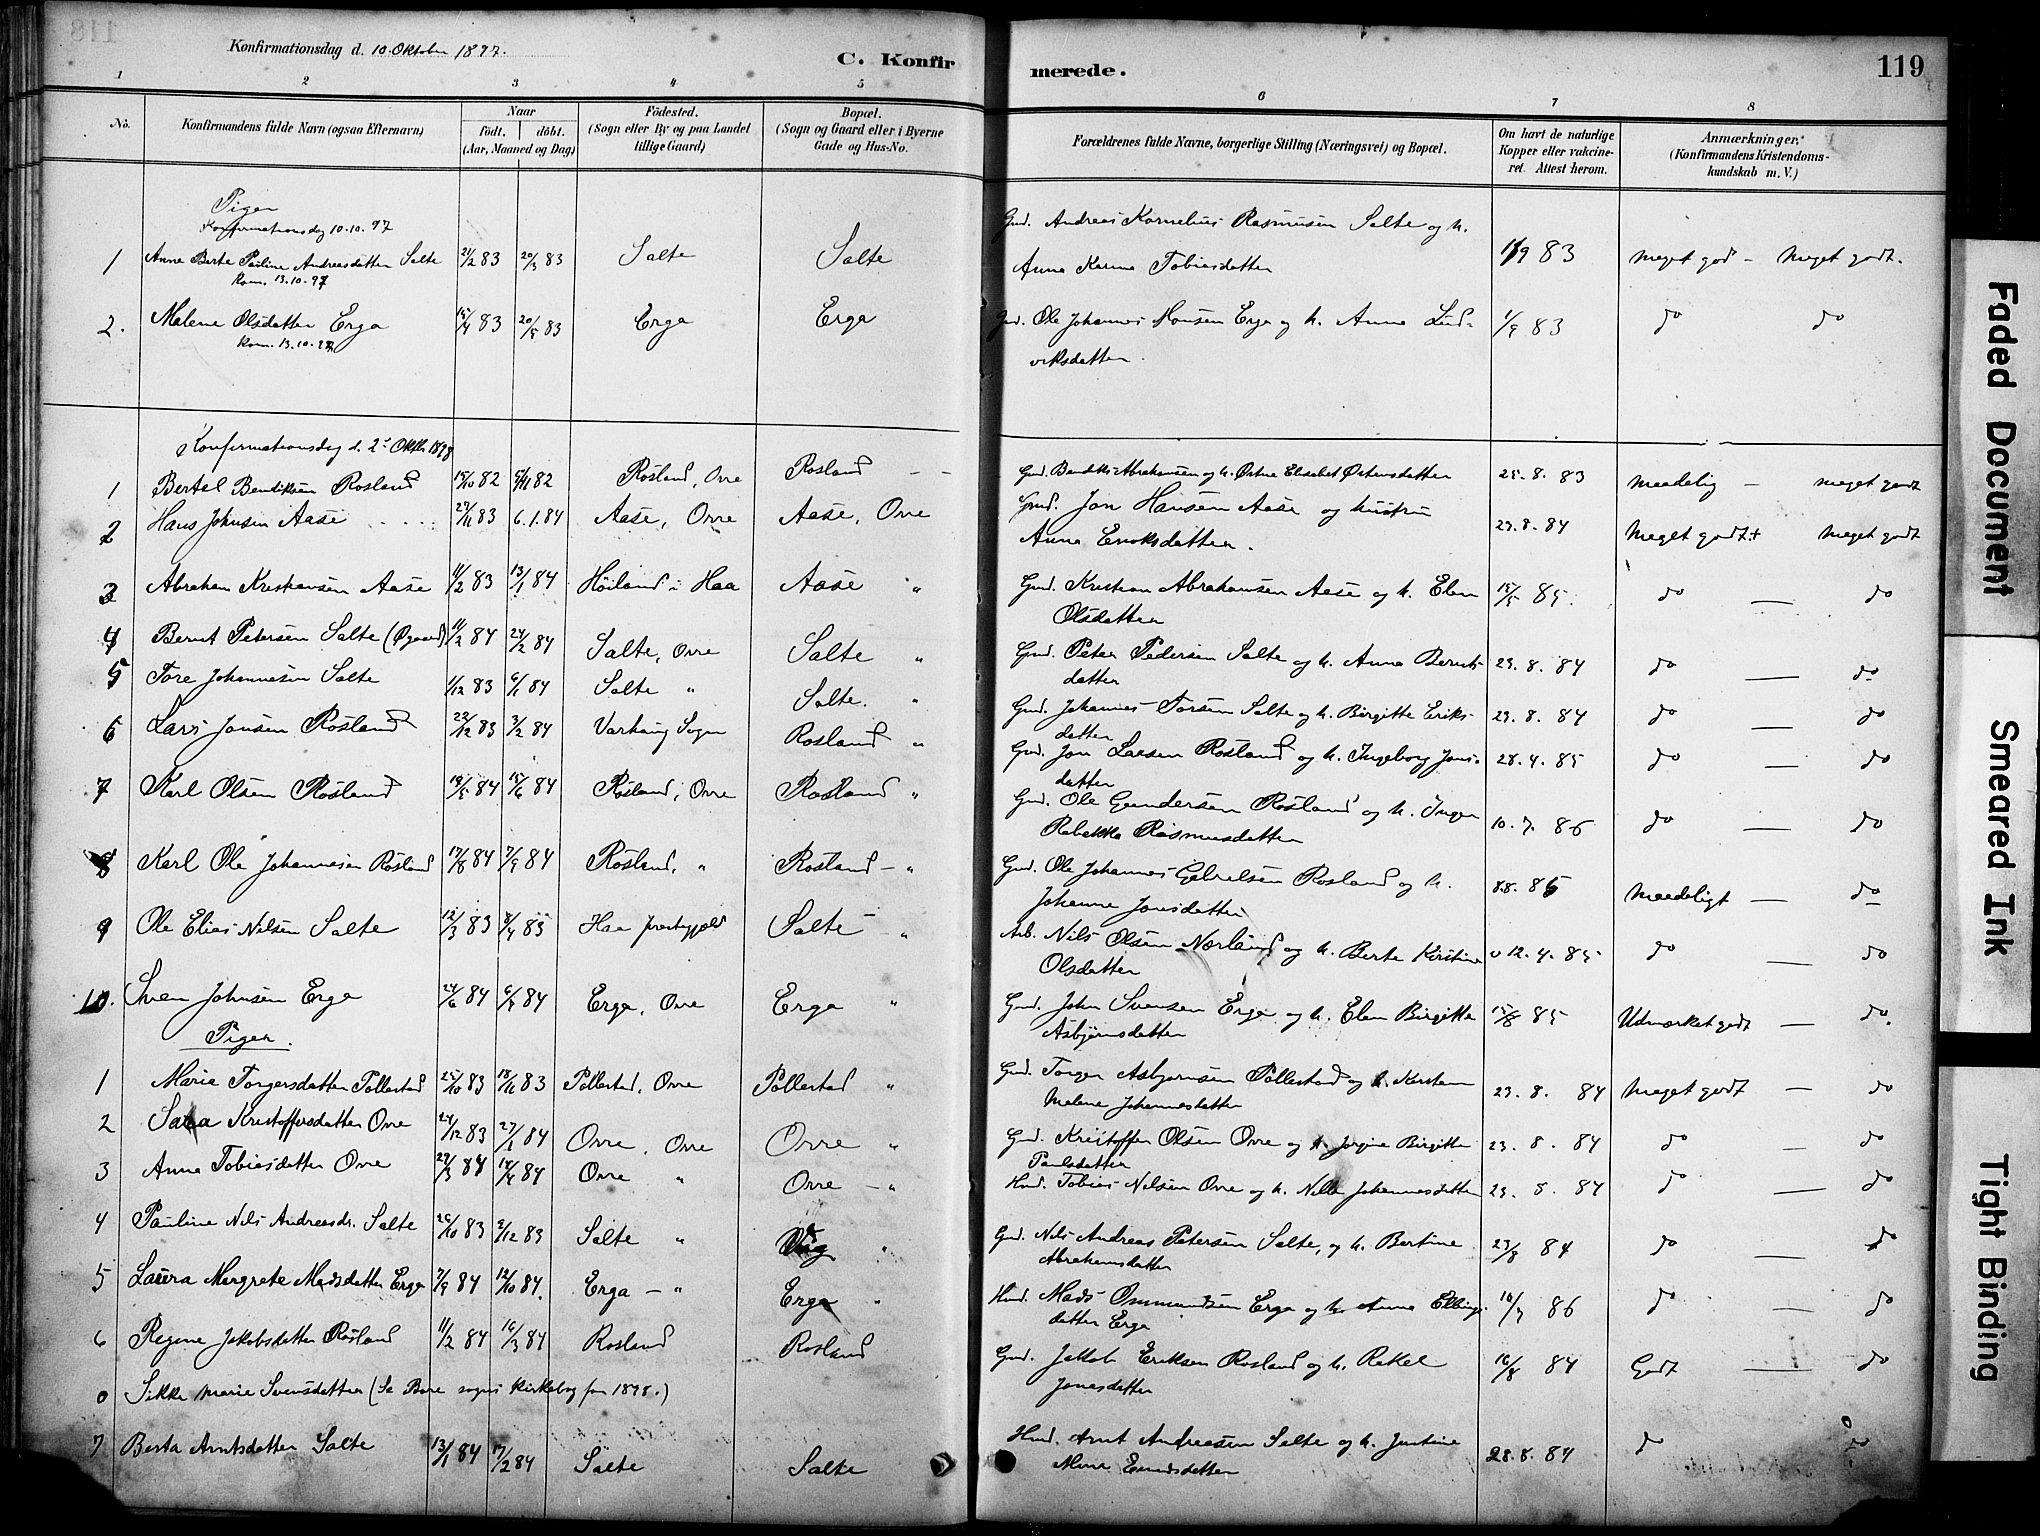 Konfirmationsdag d. 10. Oktober 1897.
C. Konfirmerede.
119
1 2 3 4 5 6 7 8
No.
Konfirmandens fulde Navn (ogsaa Efternavn)
Naar
født. døbt.
(Aar, Maaned og Dag)
Fødested.
(Sogn eller By og paa Landet
tillige Gaard)
Bopæl.
(Sogn og Gaard eller i Byerne
Gade og Hus-No.
Forældrenes fulde Navne, borgerlige Stilling (Næringsvei) og Bopæl.
Om havt de naturlige
Kopper eller vakcine-
ret. Attest herom.
Anmærkninger.
(Konfirmandens Kristendoms-
kundskab m. V.)
Piger
Konfirmationsdag 10.10.97
1 Anne Berte Pauline Andreasdatter Salte 21/2 83 20/3 83 Salte Salte Gmd. Andreas Kornelius Rasmusen Salte og h.
Kom. 13.10.97 Anna Karina Tobiasdatter 1/9 83 Meget god - Meget godt.
2. Malene Olsdatter Erga 15/4 83 20/5 83 Erga Erga Gmd. Ole Johannes Monsen Erga og h. Anna Lud- 1/9 83 do do
Kom. 13.10.97 viksdatter.
Konfirmationsdag d. 2den Oktbr. 1898
1 Bertel Bendiksen Rosland 15/10 82 5/11 82 Rosland, Orre Rosland Gmd. Bendik Abrahamsen og h. Østine Elisabet Østensdatter 25.8.83 Maadelig - meget godt
2 Hans Johnsen Aase 27/11 83 6.1.84 Aase, Orre Aase, Orre Gmd. Jon Hansen Aase og hustru
Anna Enoksdatter. 23.8.84 Meget godt + meget godt
3 Abraham Kristiansen Aase 11/12 83 13/1 84 Høiland i Haa Aase " Gmd. Kristian Abrahamsen Aase og h. Elen
Olsdatter 15/5 85. do — do
4 Bernt Petersen Salte (Øgaard) 11/2 84 24/2 84 Salte, Orre Salte " Gmd. Peter Pedersen Salte og h. Anna Bernts-
datter 23.8.84 do — do
5 Tore Johannesen Salte 1/12 83 6/1 84 Salte " Salte. " Gmd. Johannes Torsen Salte og h. Birgitte Eriks-
datter 23.8.84 do — do
6 Lars Jonsen Rosland 22/12 83 3/2 84 Varhaug Sogn Rosland " Gmd. Jon Larsen Rosland og h. Ingeborg Jons-
datter 28.4.85 do — do
7 Karl Olsen Rosland 19/5 84 15/6 84 Rosland, Orre Rosland " Gmd. Ole Gundersen Rosland og h. Inger
Rebekka Rasmusdatter 10.7.86 do — do
8 Karl Ole Johannesen Rosland 17/8 84 7/9 84 Rosland, " Rosland - " Gmd. Ole Johannes Gabrielsen Rosland og h.
Johanne Jonsdatter 8.8.86 Maadeligt — do
9 Ole Elias Nilsen Salte 12/3 83 8/4 83 Haa prestegjæld Salte - " Arb. Nils Olsen Nærland og h. Berte Kirstine
Olsdatter v 12.4.85 do — do
10. Sven Johnsen Erga 24/6 84 6/7 84 Erga, Orre Erga " Gmd. John Svensen Erga og h. Elen Birgitte
Asbjørnsdatter 15/8 85 Udmærket godt — do.
Piger.
1 Marie Torgersdatter Pollestad 25/10 83 18/11 83 Pollestad, Orre Pollestad " Gmd. Torger Asbjørnsen Pollestad og h. Kirsten
Malene Johannesdatter 23.8.84 Meget godt — do
2 Sara Kristoffersdatter Orre 24/12 83 27/1 84 Orre, Orre Orre " Gmd. Kristoffer Olsen Orre og h. Jorgine Birgitte
Paulsdatter 23.8.84 do — do
3 Anna Tobiasdatter Orre 29/3 84 14/4 84 Orre " Orre - " Hmd. Tobias Nilsen Orre og h. Nille Johannesdatter 23.8.84 do — do
4 Pauline Nils Andreasdr. Salte 26/10 83 9/12 83 Salte " Gmd. Nils Andreas Petersen Salte, og h. Bertine
Abrahamsdatter 23/8 84 do — do
5 Laura Margrete Madsdatter Erga 7/9 84 12/10 84. Erga - " Erga " Hmd. Mads Ommundsen Erga og h. Anna
datter Erga 10/7 86 do — do
6 Regine Jakobsdatter Rosland 11/2 84 16/3 84 Rosland Rosland Gmd. Jakob Eriksen Rosland og h. Rakel
Jonasdatter 16/8 84 Godt — do
0 Sikke Marie Svensdatter (Se Bore sogns kirkebog for 1898.)
7 Berta Arntsdatter Salte 13/1 84 17/2 84 Salte Salte Hmd. Arnt Andreasen Salte og h. Justine
28.8.84 do do
Faded Document
Smeared Ink
Tight Binding